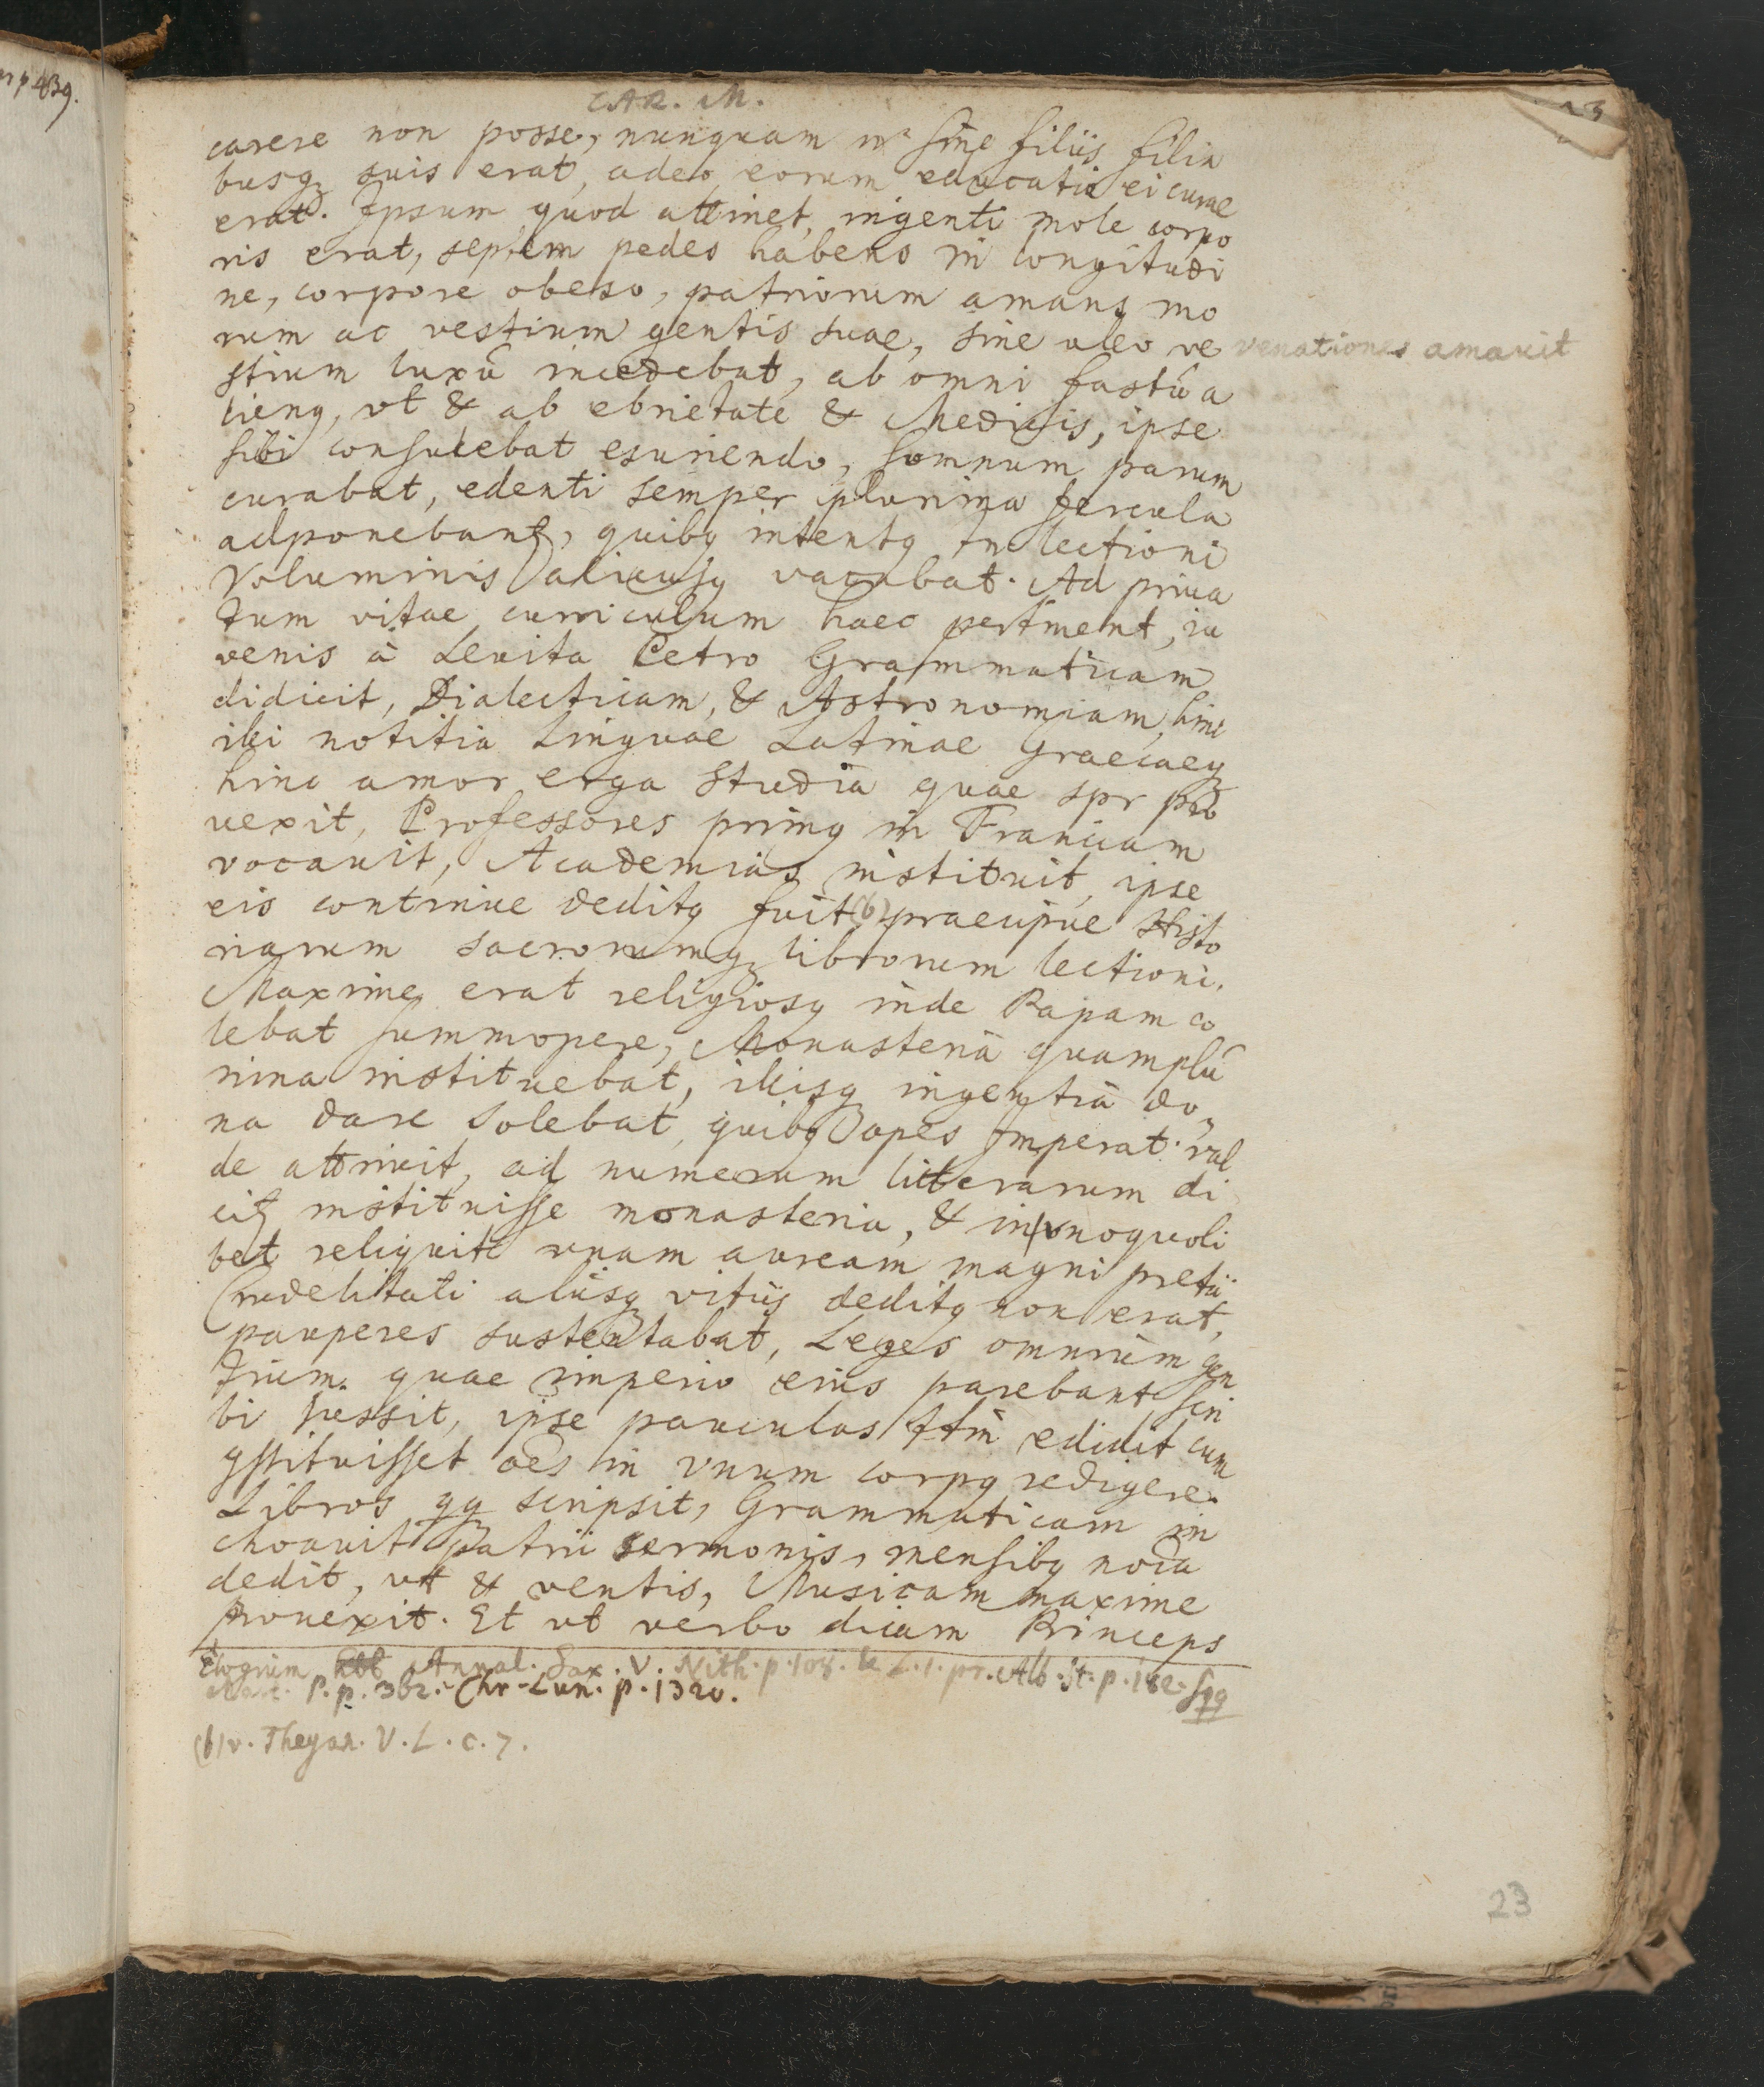 p 439.
23
CAR. M.
carere non posse, nunquam n. sine filiis filia
busq; suis erat, adeo eorum educatio ei curae
erat. Ipsum quod attinet, ingenti mole corpo
ris erat, septem pedes habens in longitudi
ne, corpore obeso, patriorum amans mo
rum ac vestium gentis suae, sine ullo ve venationes amauit
stium luxû incedebat, ab omni fastû a
lieng, vt & ab ebrietate & Medicis, ipse
sibi consulebat esuriendo, somnum parum
curabat, edenti semper plurima fercula
adponebant, quibg intentg tn lectioni
Voluminis alicujg vacabat. Ad priua
tum vitae curriculum haec pertinent, iu
venis à Levita Petro Grammaticam
didicit, Dialecticam, & Astronomiam, hinc
illi notitia Linguae Latinae Graecaeq;
hinc amor erga Studia quae spr pro
uexit, Professores primg in Franciam
vocauit, Academias instituit, ipse
eis continue deditg fuit (b) praecipue Histo
riarum sacrorumq; librorum lectioni.
Maxime erat religiosg inde Papam co
lebat summopere, Monasteria quamplu
rima instituebat, illisq; ingentia do
na dare solebat, quibg opes Imperat. val
de attriuit, ad numerum litterarum di
cit instituisse monasteria, & in vnoquoli
bet reliquit vnam auream magni pretii
Crudelitati aliisq; vitiis deditg non erat,
pauperes sustentabat, Leges omnium gen
tium quae imperio eius parebant scri
bi jussit, ipse pauculas ttm edidit cum
gstituisset oēs in vnum corpg redigere.
Libros qq scripsit, Grammaticam in
choauit patrii sermonis, mensibg noīa
dedit, vt & ventis, Musicam maxime
prouexit. Et vt verbo dicam Princeps
Elogium hbt Annal. Sax. V. Nith. p. 108. L. 1. pr. Alb. St. p. 182. sqq
P. p. 362. Chr. Lun. p. 1320.
(b) v. Thegan. V. L. c. 7.
23